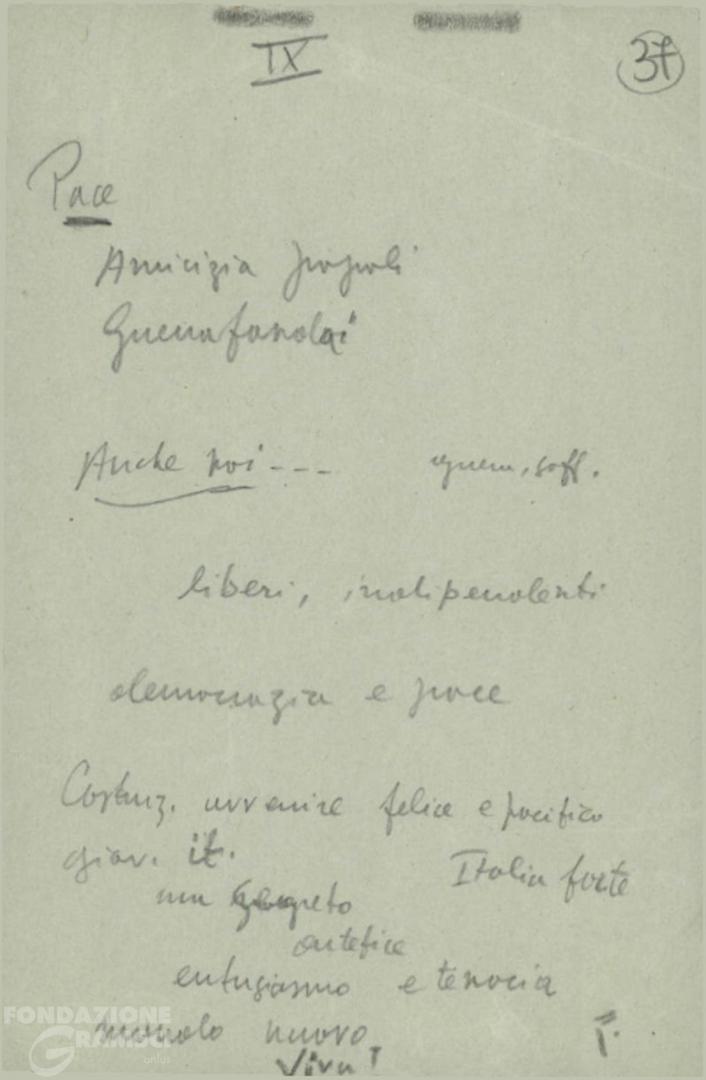 IX
37
Pace
Amicizia popoli
Guerra
Anche noi --- guerr., soff.
liberi, indipendenti
democrazia e pace
Costruz. avvenire felice e pacifico
giov. it. Italia forte
un segreto
artefice
entusiasmo e tenacia
mondo nuovo
Viva
FONDAZIONE
GRAMSCI
onlus